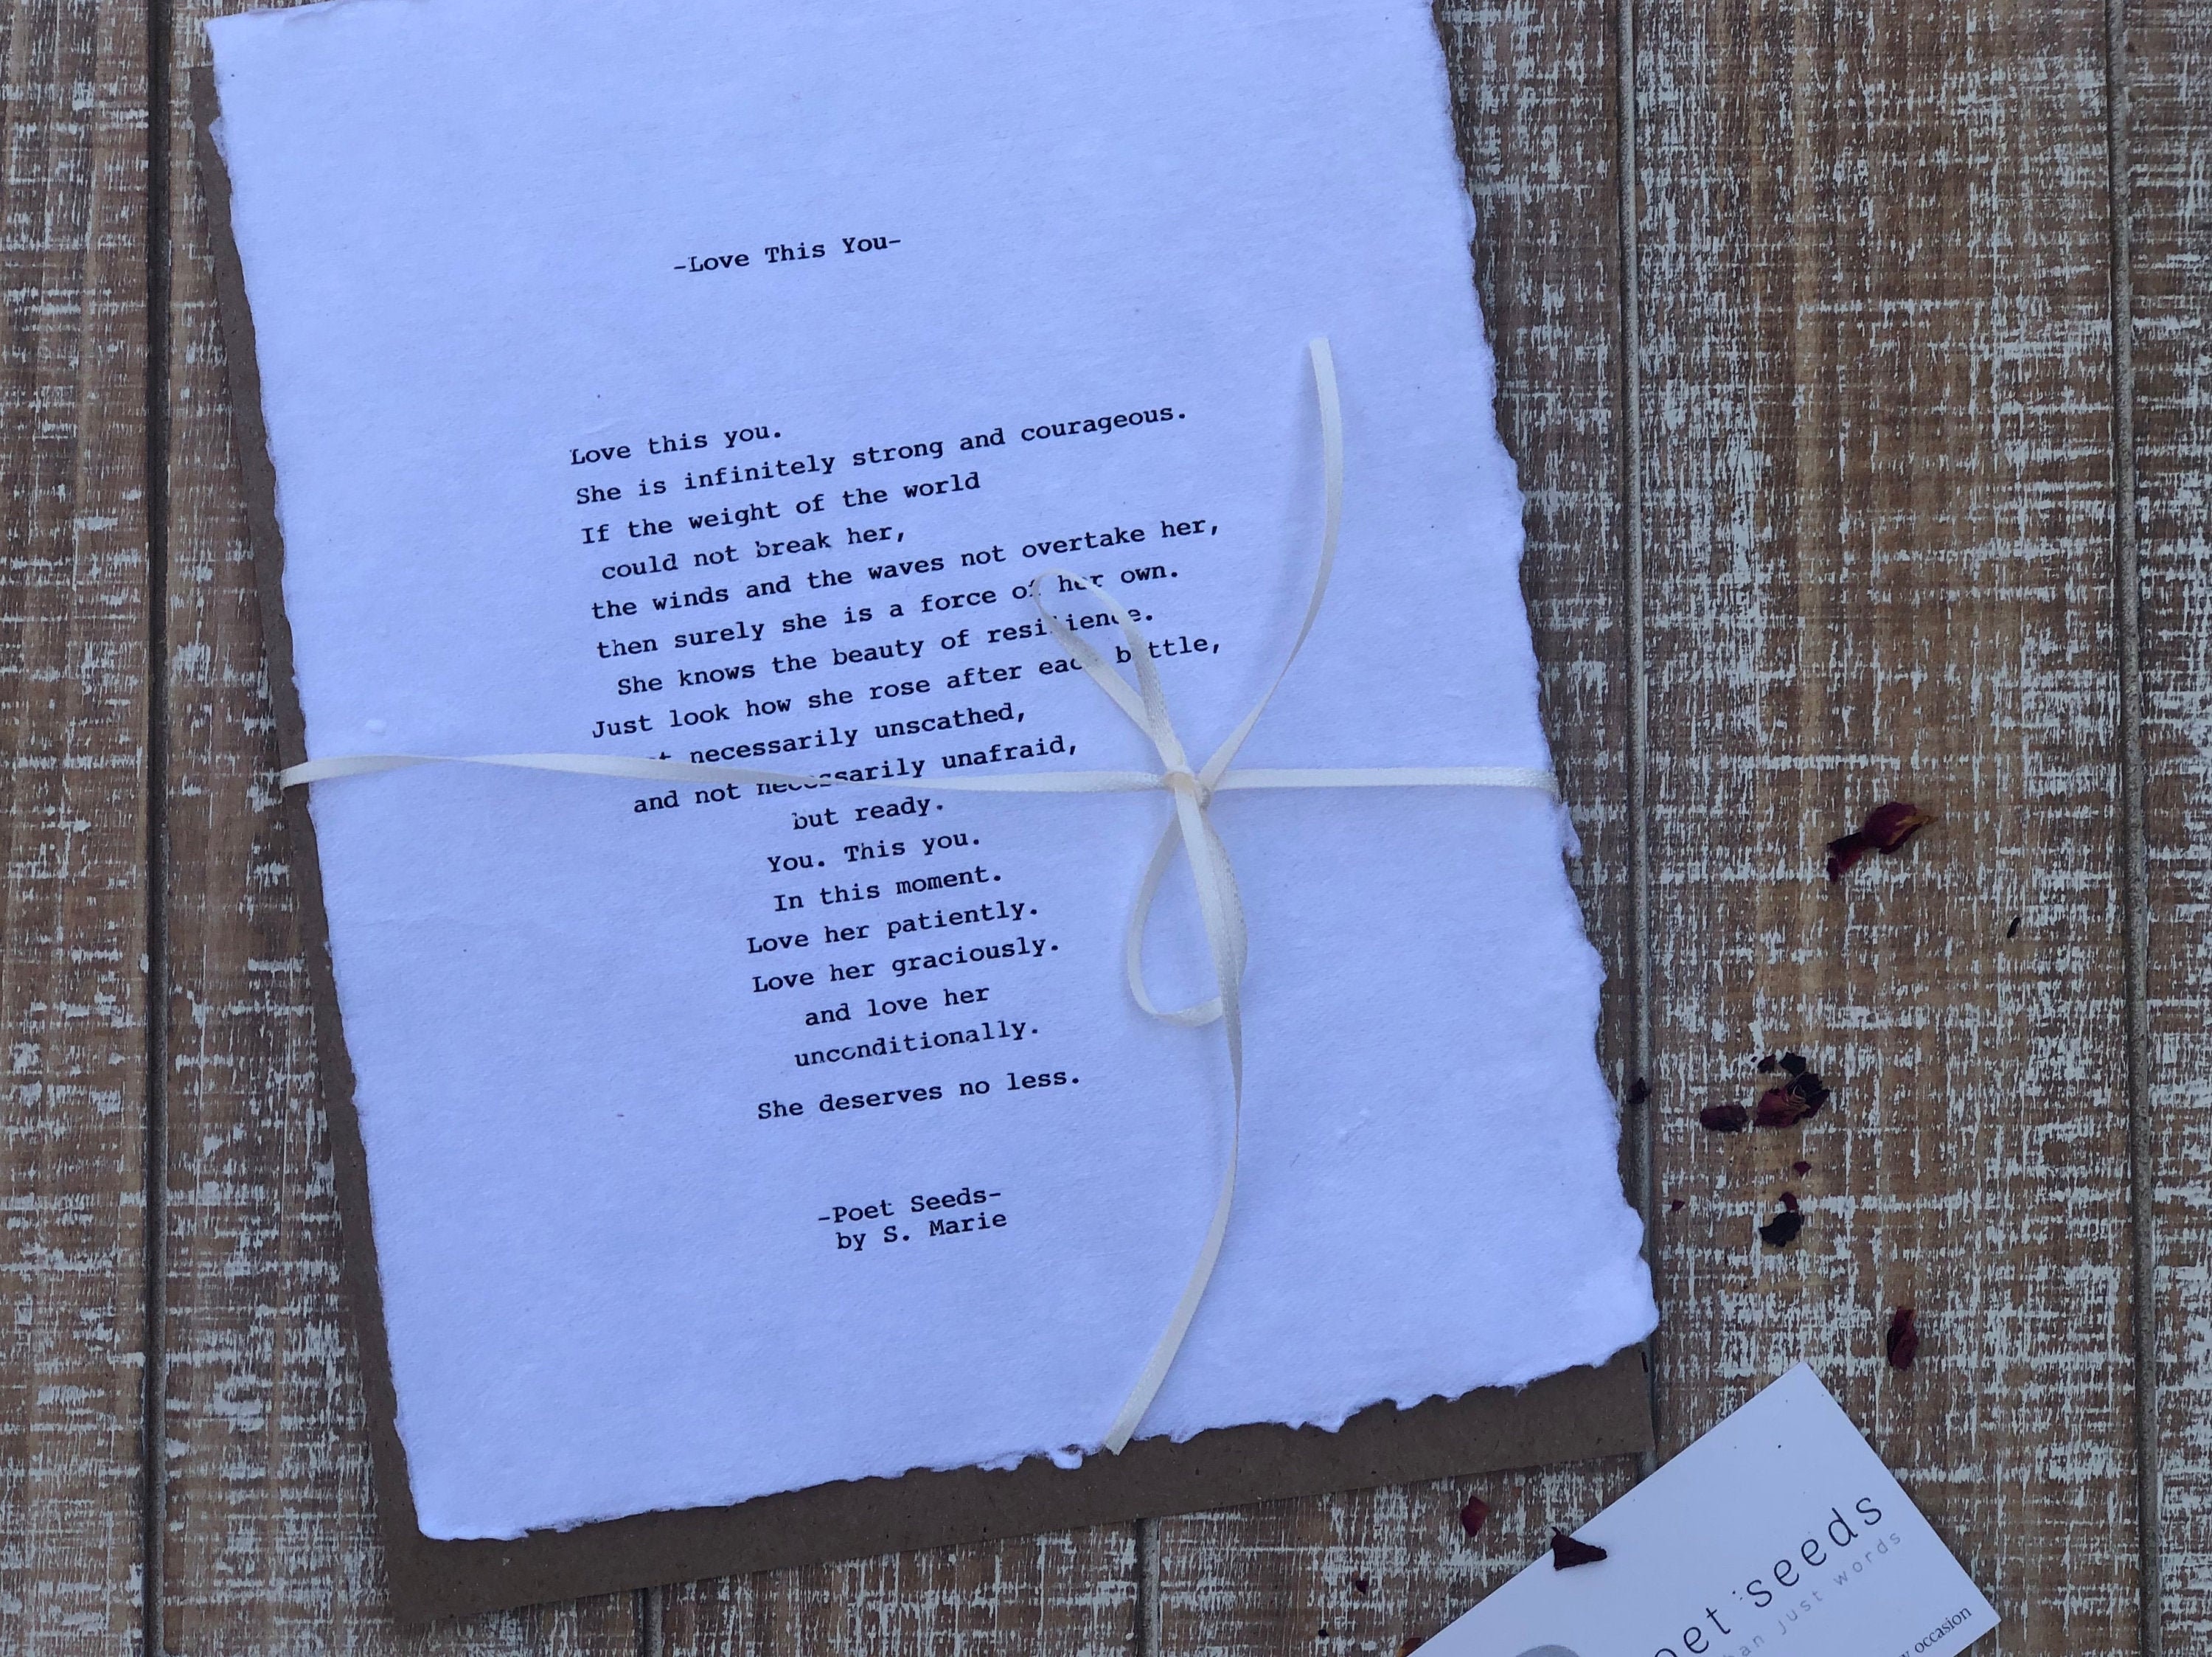 -Love This You-
Love this you.
She is infinitely strong and courageous.
If the weight of the world
could not break her,
the winds and the waves not overtake her,
then surely she is a force of her own.
She knows the beauty of resilience.
Just look how she rose after each battle,
necessarily unscathed,
and not necessarily unafraid,
but ready.
You. This you.
In this moment.
Love her patiently.
Love her graciously.
and love her
unconditionally.
She deserves no less.
-Poet Seeds-
by S. Marie
seeds
just words
occasion